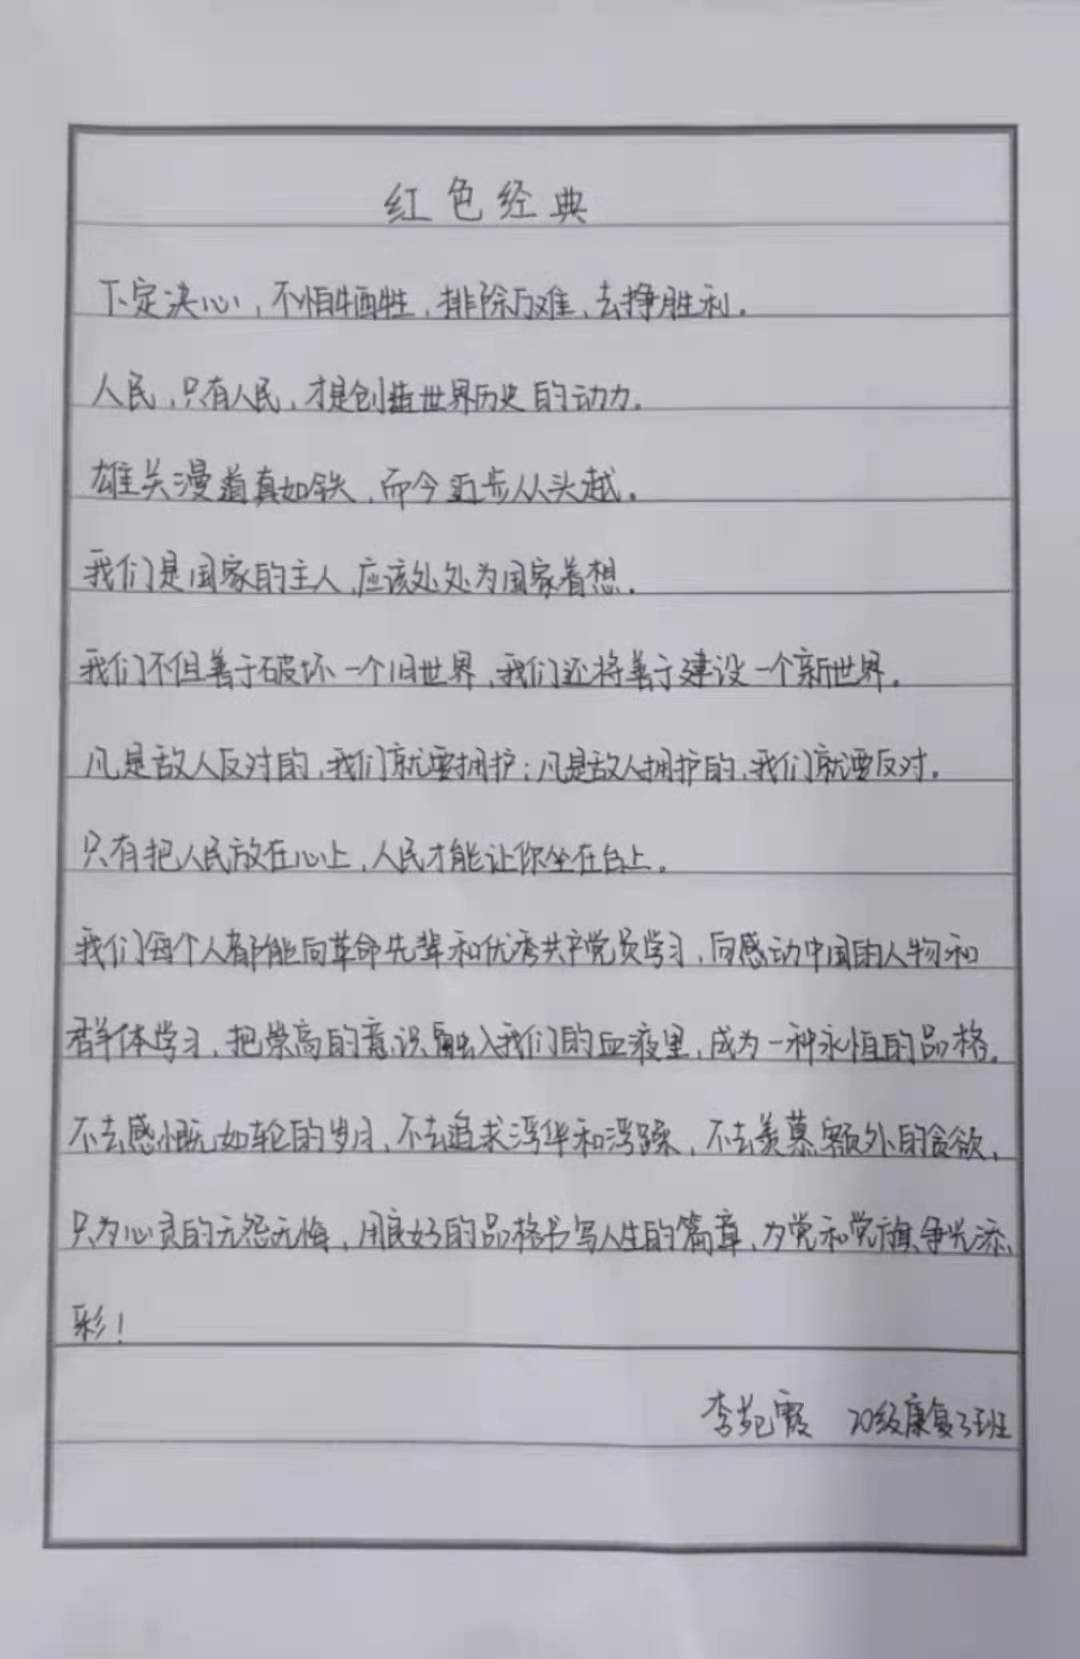 红色经典
下定决心，不怕牺牲，排除万难，去挣胜利。
人民，只有人民，才是创造世界历史的动力。
雄关漫道真如铁，而今迈步从头越。
我们是国家的主人，应该处处为国家着想。
我们不但善于破坏一个旧世界，我们还将善于建设一个新世界。
凡是敌人反对的，我们就要拥护；凡是敌人拥护的，我们就要反对。
只有把人民放在心上，人民才能让你坐在台上。
我们每个人都能向革命先辈和优秀共产党员学习，向感动中国的人物和
群体学习，把崇高的意识融入我们的血液里，成为一种永恒的品格。
不去感慨如轮的岁月，不去追求浮华和浮躁，不去羡慕额外的贪欲，
只为心灵的无怨无悔，用良好的品格书写人生的篇章，为党和党旗争光添
彩！
李苑霞 20级康复3班